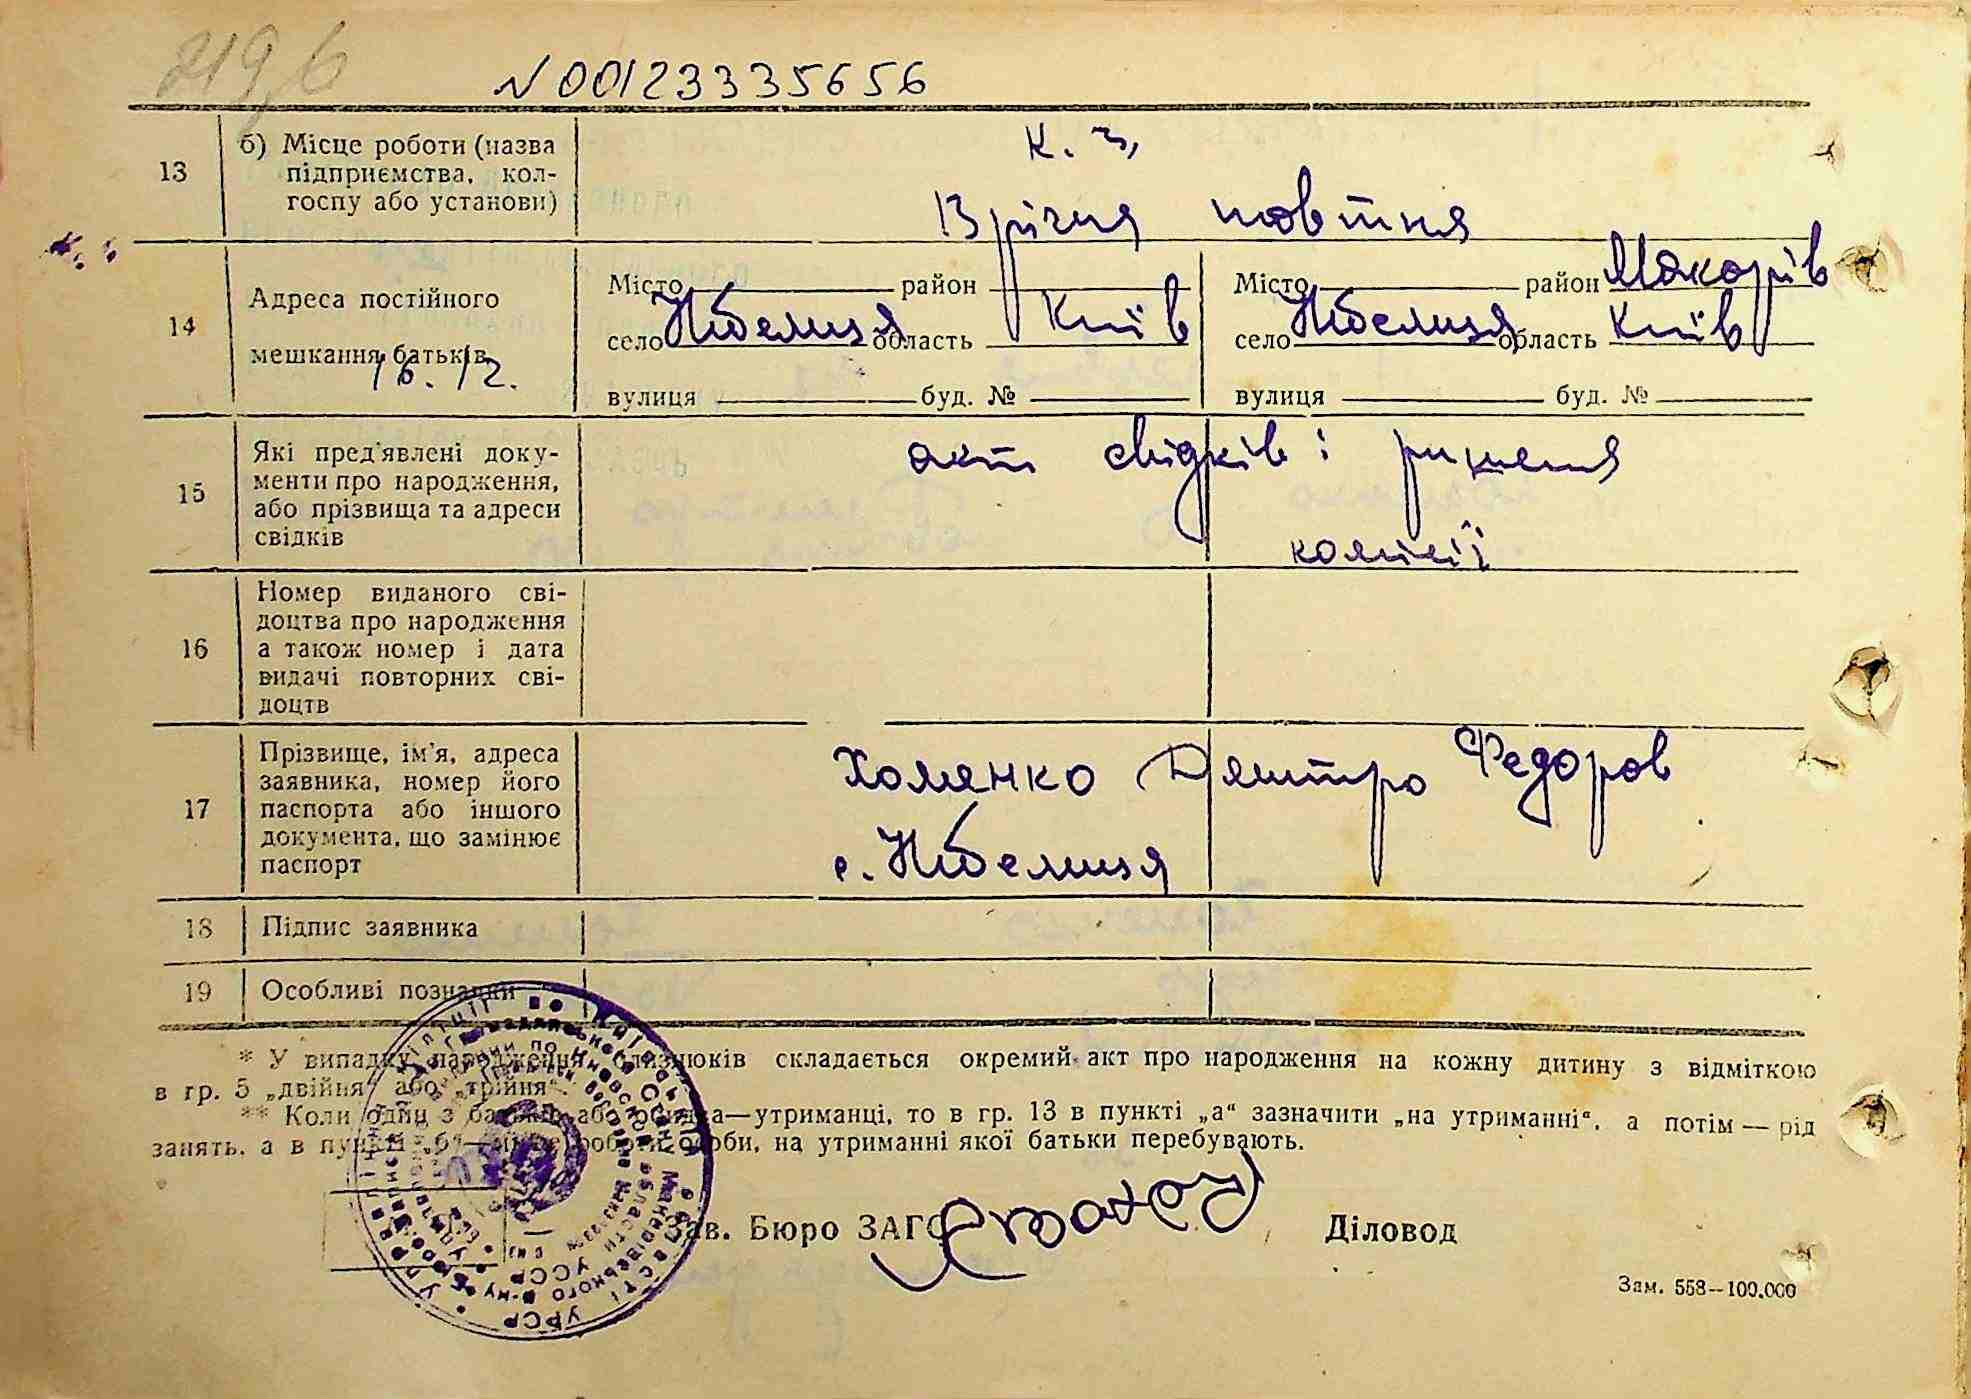 219б
N 00123335656
13
б) Місце роботи (назва
підприємства, кол-
госпу або установи)
к. з,
13 річчя жовтня
14
Адреса постійного
мешкання батьків
16. 12.
Місто район
село Небелиця область Київ
вулиця буд. №
Місто район Макарів
село Небелиця область Київ
вулиця буд. №
15
Які пред'явлені доку-
менти про народження,
або прізвища та адреси
свідків
акт свідків і ришения
комісії
16
Номер виданого сві-
доцтва про народження
а також номер і дата
видачі повторних сві-
доцтв
17
Прізвище, ім'я, адреса
заявника, номер його
паспорта або іншого
документа, що замінює
паспорт
Хоменко Дмитро Федоров
с. Небелиця
18
Підпис заявника
19
Особливі познавки
* У випадку народження близнюків складається окремий акт про народження на кожну дитину з відміткою
в гр. 5 „двійня“ або „трійня“.
** Коли один з батьків або обидва—утриманці, то в гр. 13 в пункті „а“ зазначити „на утриманні“, а потім — рід
занять, а в пункті „б“—місце роботи особи, на утриманні якої батьки перебувають.
Зав. Бюро ЗАГС
Діловод
Зам. 558—100.000